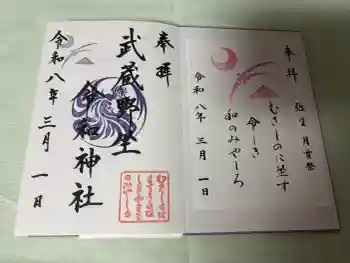 奉拝
弥生 月首祭
むさしのに坐す
令しき
和のみやしろ
令和八年 三月 一日
奉拝
武蔵野坐
令和神社
令和八年 三月 一日